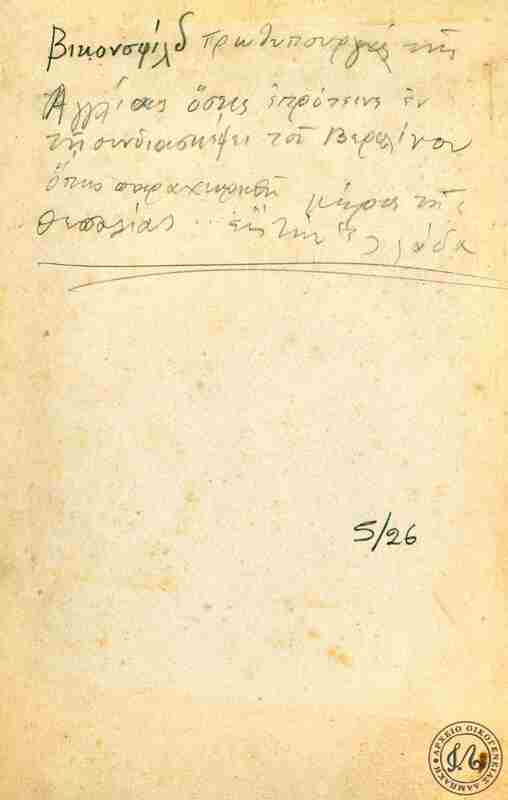 Βικονσφίλδ πρωθυπουργός τῆς
Ἀγγλίας ὅστις ἐπρότεινε ἐν
τῇ συνδιασκέψει τοῦ Βερολίνου
ὅπως παραχωρηθῇ μέρος τῆς
Θεσσαλίας εἰς τὴν Ἑλλάδα
5/26
ΑΡΧΕΙΟ ΟΙΚΟΓΕΝΕΙΑΣ ΛΑΜΠΑΚΗ